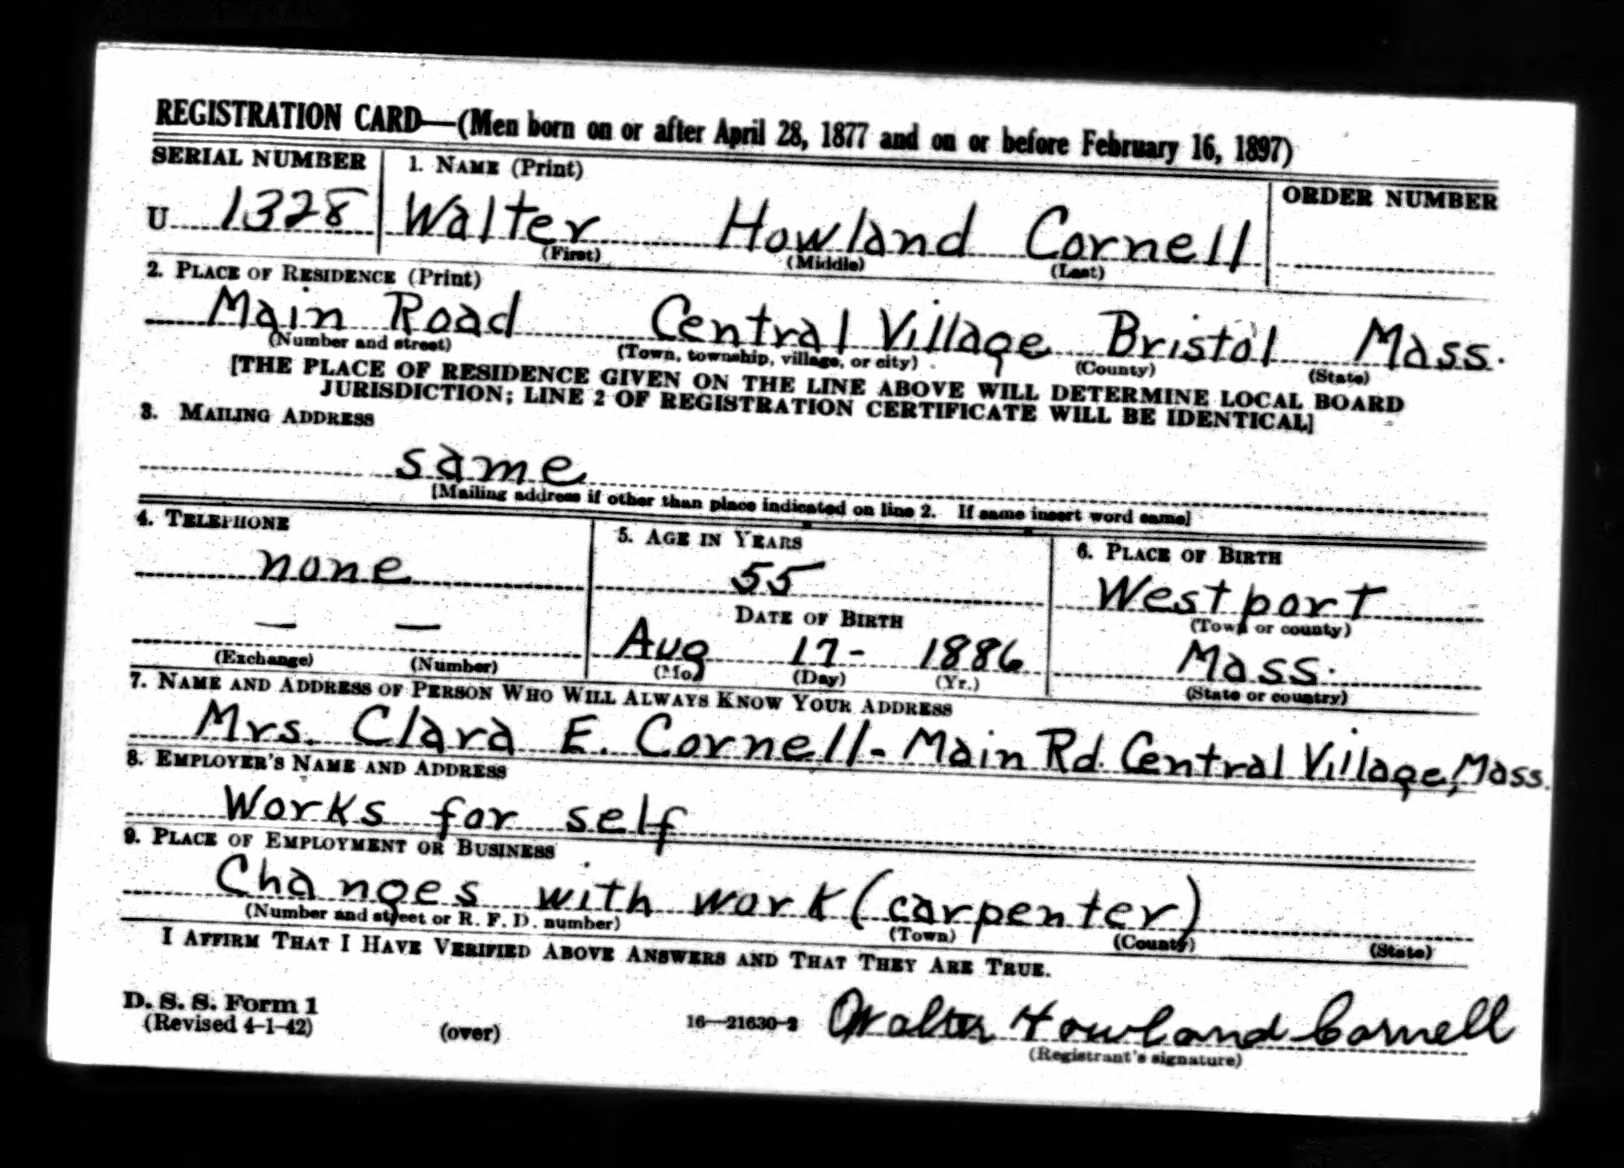 REGISTRATION CARD—(Men born on or after April 28, 1877 and on or before February 16, 1897)
SERIAL NUMBER 1. NAME (Print) ORDER NUMBER
U 1328 Walter Howland Cornell
(First) (Middle) (Last)
2. PLACE OF RESIDENCE (Print)
Main Road Central Village Bristol Mass.
(Number and street) (Town, township, village, or city) (County) (State)
[THE PLACE OF RESIDENCE GIVEN ON THE LINE ABOVE WILL DETERMINE LOCAL BOARD
JURISDICTION; LINE 2 OF REGISTRATION CERTIFICATE WILL BE IDENTICAL]
3. MAILING ADDRESS
same
[Mailing address if other than place indicated on line 2. If same insert word same]
4. TELEPHONE 5. AGE IN YEARS 6. PLACE OF BIRTH
none 55 Westport
DATE OF BIRTH (Town or county)
— — Aug 17- 1886 Mass.
(Exchange) (Number) (Mo.) (Day) (Yr.) (State or country)
7. NAME AND ADDRESS OF PERSON WHO WILL ALWAYS KNOW YOUR ADDRESS
Mrs. Clara E. Cornell- Main Rd. Central Village, Mass.
8. EMPLOYER'S NAME AND ADDRESS
Works for self
9. PLACE OF EMPLOYMENT OR BUSINESS
Changes with work (carpenter)
(Number and street or R. F. D. number) (Town) (County) (State)
I AFFIRM THAT I HAVE VERIFIED ABOVE ANSWERS AND THAT THEY ARE TRUE.
D. S. S. Form 1
(Revised 4-1-42) (over) 16—21630-2 Walter Howland Cornell
(Registrant's signature)